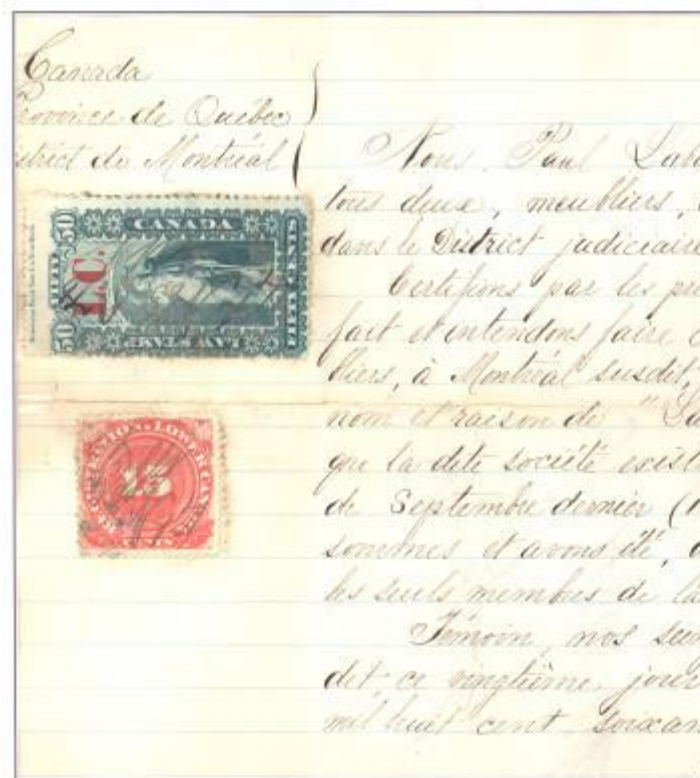 Canada
Province de Québec
district de Montréal
Nous Paul Lab
tous deux, meubliers,
dans le District judiciaire
Certifions par les pré
fait et entendons faire c
bliers, à Montréal susdit,
nom et raison de " La
que la dite société exist
de Septembre dernier (1
sommes et avons été, d
les seuls membres de la
Témoin, nos seu
dit ce vingtième jour
mil huit cent soixan
50 50
L.C.
CANADA
FIFTY CENTS
LAW STAMP
REGISTRATION LOWER CANADA
15
CENTS